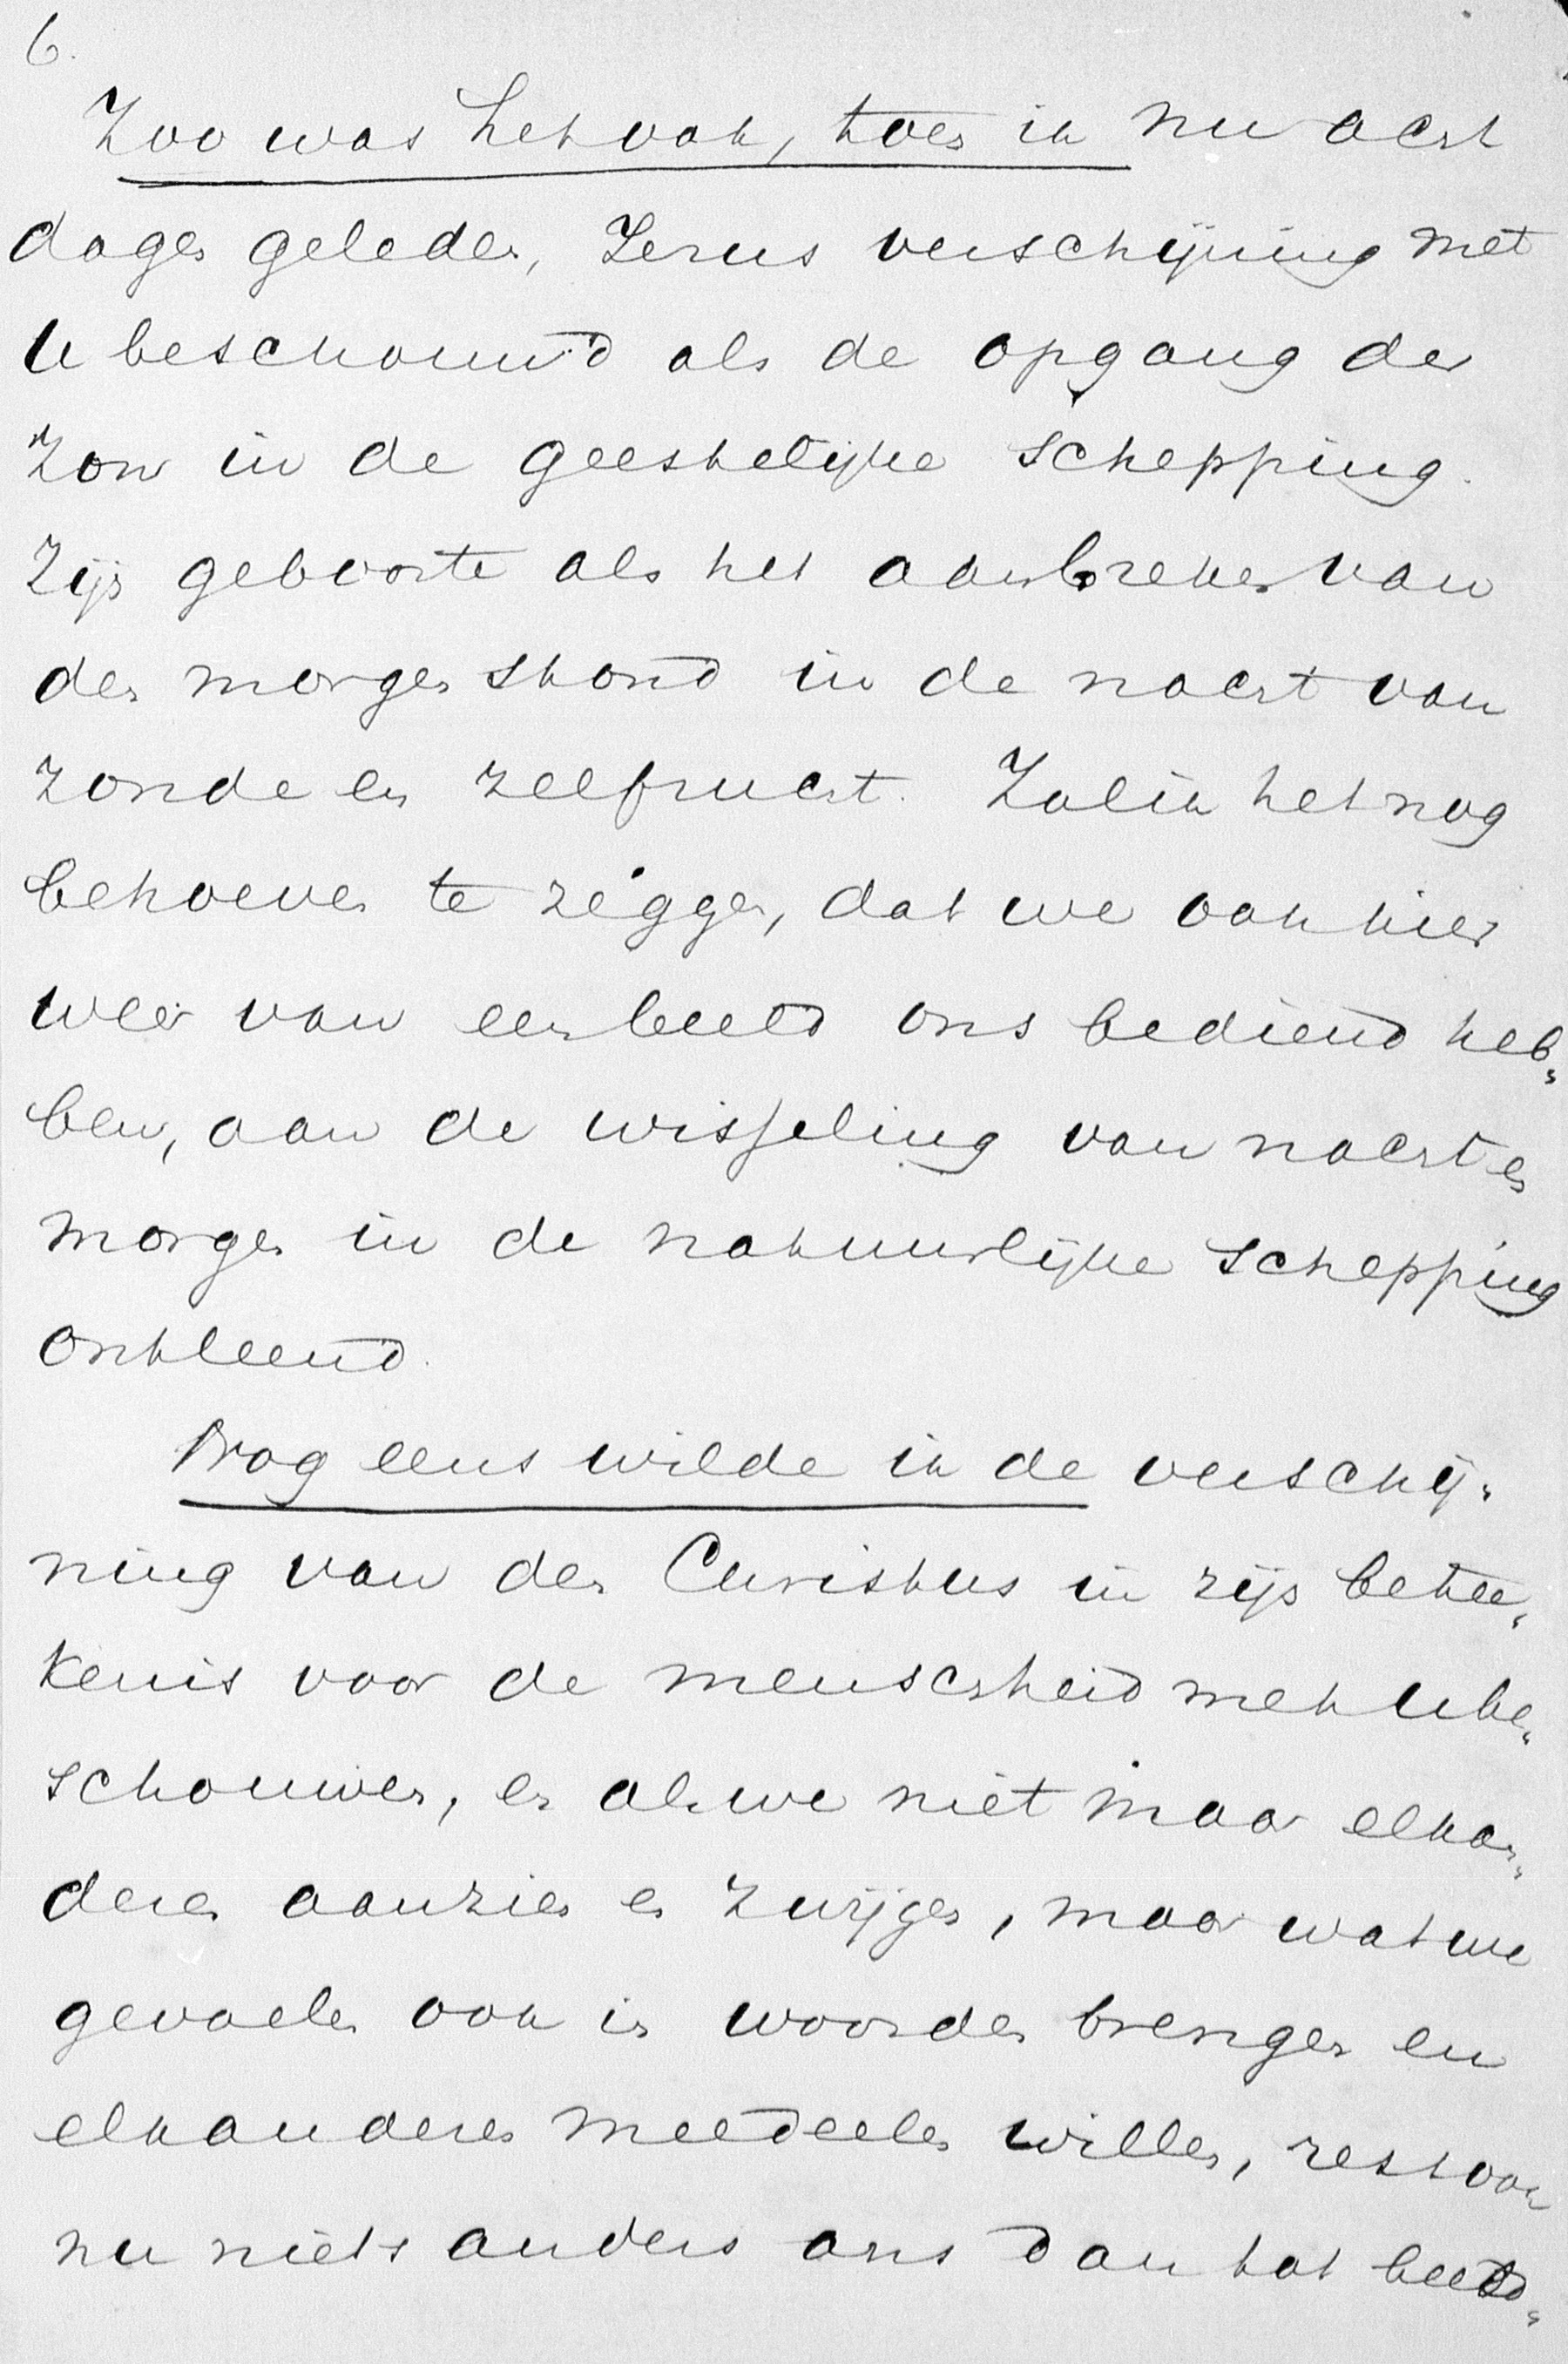 6.
Zoo was het ook, toen ik nu acht
dagen geleden, Jezus verschijning met
U beschouwd als de opgang der
zon in de geestelijke schepping.
Zijn geboorte als het aanbreken van
den morgenstond in de nacht van
zonde en zelfzucht. Zal ik het nog
behoeven te zeggen, dat we ook hier
weer van een beeld ons bediend heb„
ben, aan de wisseling van nacht en
morgen in de natuurlijke schepping
ontleend.
Nog eens wilde ik de verschij„
ning van den Christus in zijn betee„
kenis voor de menschheid met U be„
schouwen, en als we niet maar elkan„
deren aanzien en zwijgen, maar wat we
gevoelen ook in woorden brengen en
elkanderen meedeelen willen, rest ook
nu niets anders ons dan tot beeld„